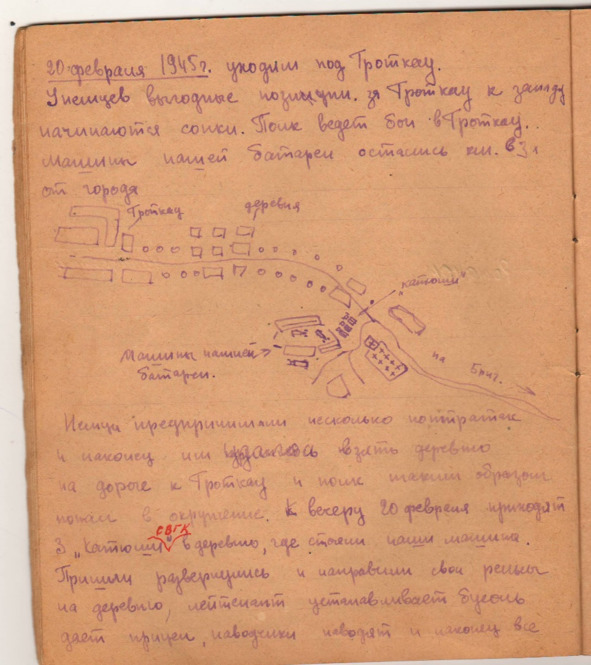 20 февраля 1945г. уходим под Гроткау.
У немцев выгодные позиции. за Гроткау к западу
начинаются сопки. Полк ведет бои в Гроткау.
Машины нашей батареи остались км. в 3х
от города
Гроткау
деревня
"катюши"
Машины нашей
батареи.
на
Бриг.
Немцы предпринимали несколько контратак
и наконец им удалось взять деревню
на дороге к Гроткау и полк таким образом
попал в окружение. К вечеру 20 февраля приходят
СВГК
3 "Катюши" в деревню, где стояли наши машина.
Пришли развернулись и направили свои рельсы
на деревню, лейтенант устанавливает буссоль
дает прицел, наводчики наводят и наконец все